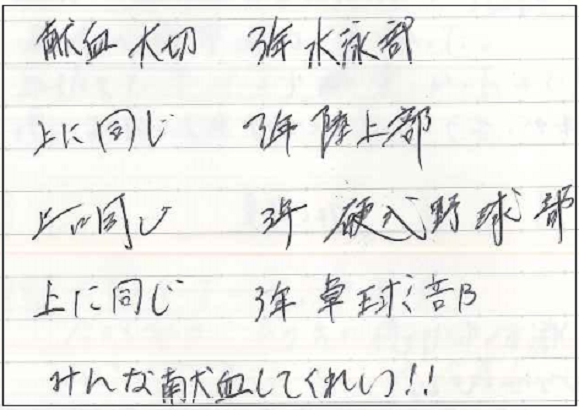 献血 大切 3年 水泳部
上に同じ 3年 陸上部
上に同じ 3年 硬式野球部
上に同じ 3年 卓球部
みんな献血してくれぃ!!